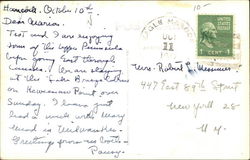 Hancock, October 10th
Dear Marion.
Ted and I are enjoying
some of the Upper Peninsula
before going East through
Canada. We are staying
at the Lake Breeze
on Keweenaw Point over
Sunday. I have just
had a week with Mary
in Milwaukee.
Greetings from us both -
Pansy.
OCT
11
1 CENT 1
Mrs. Robert
447 East 89th Street
New York 28
N.Y.